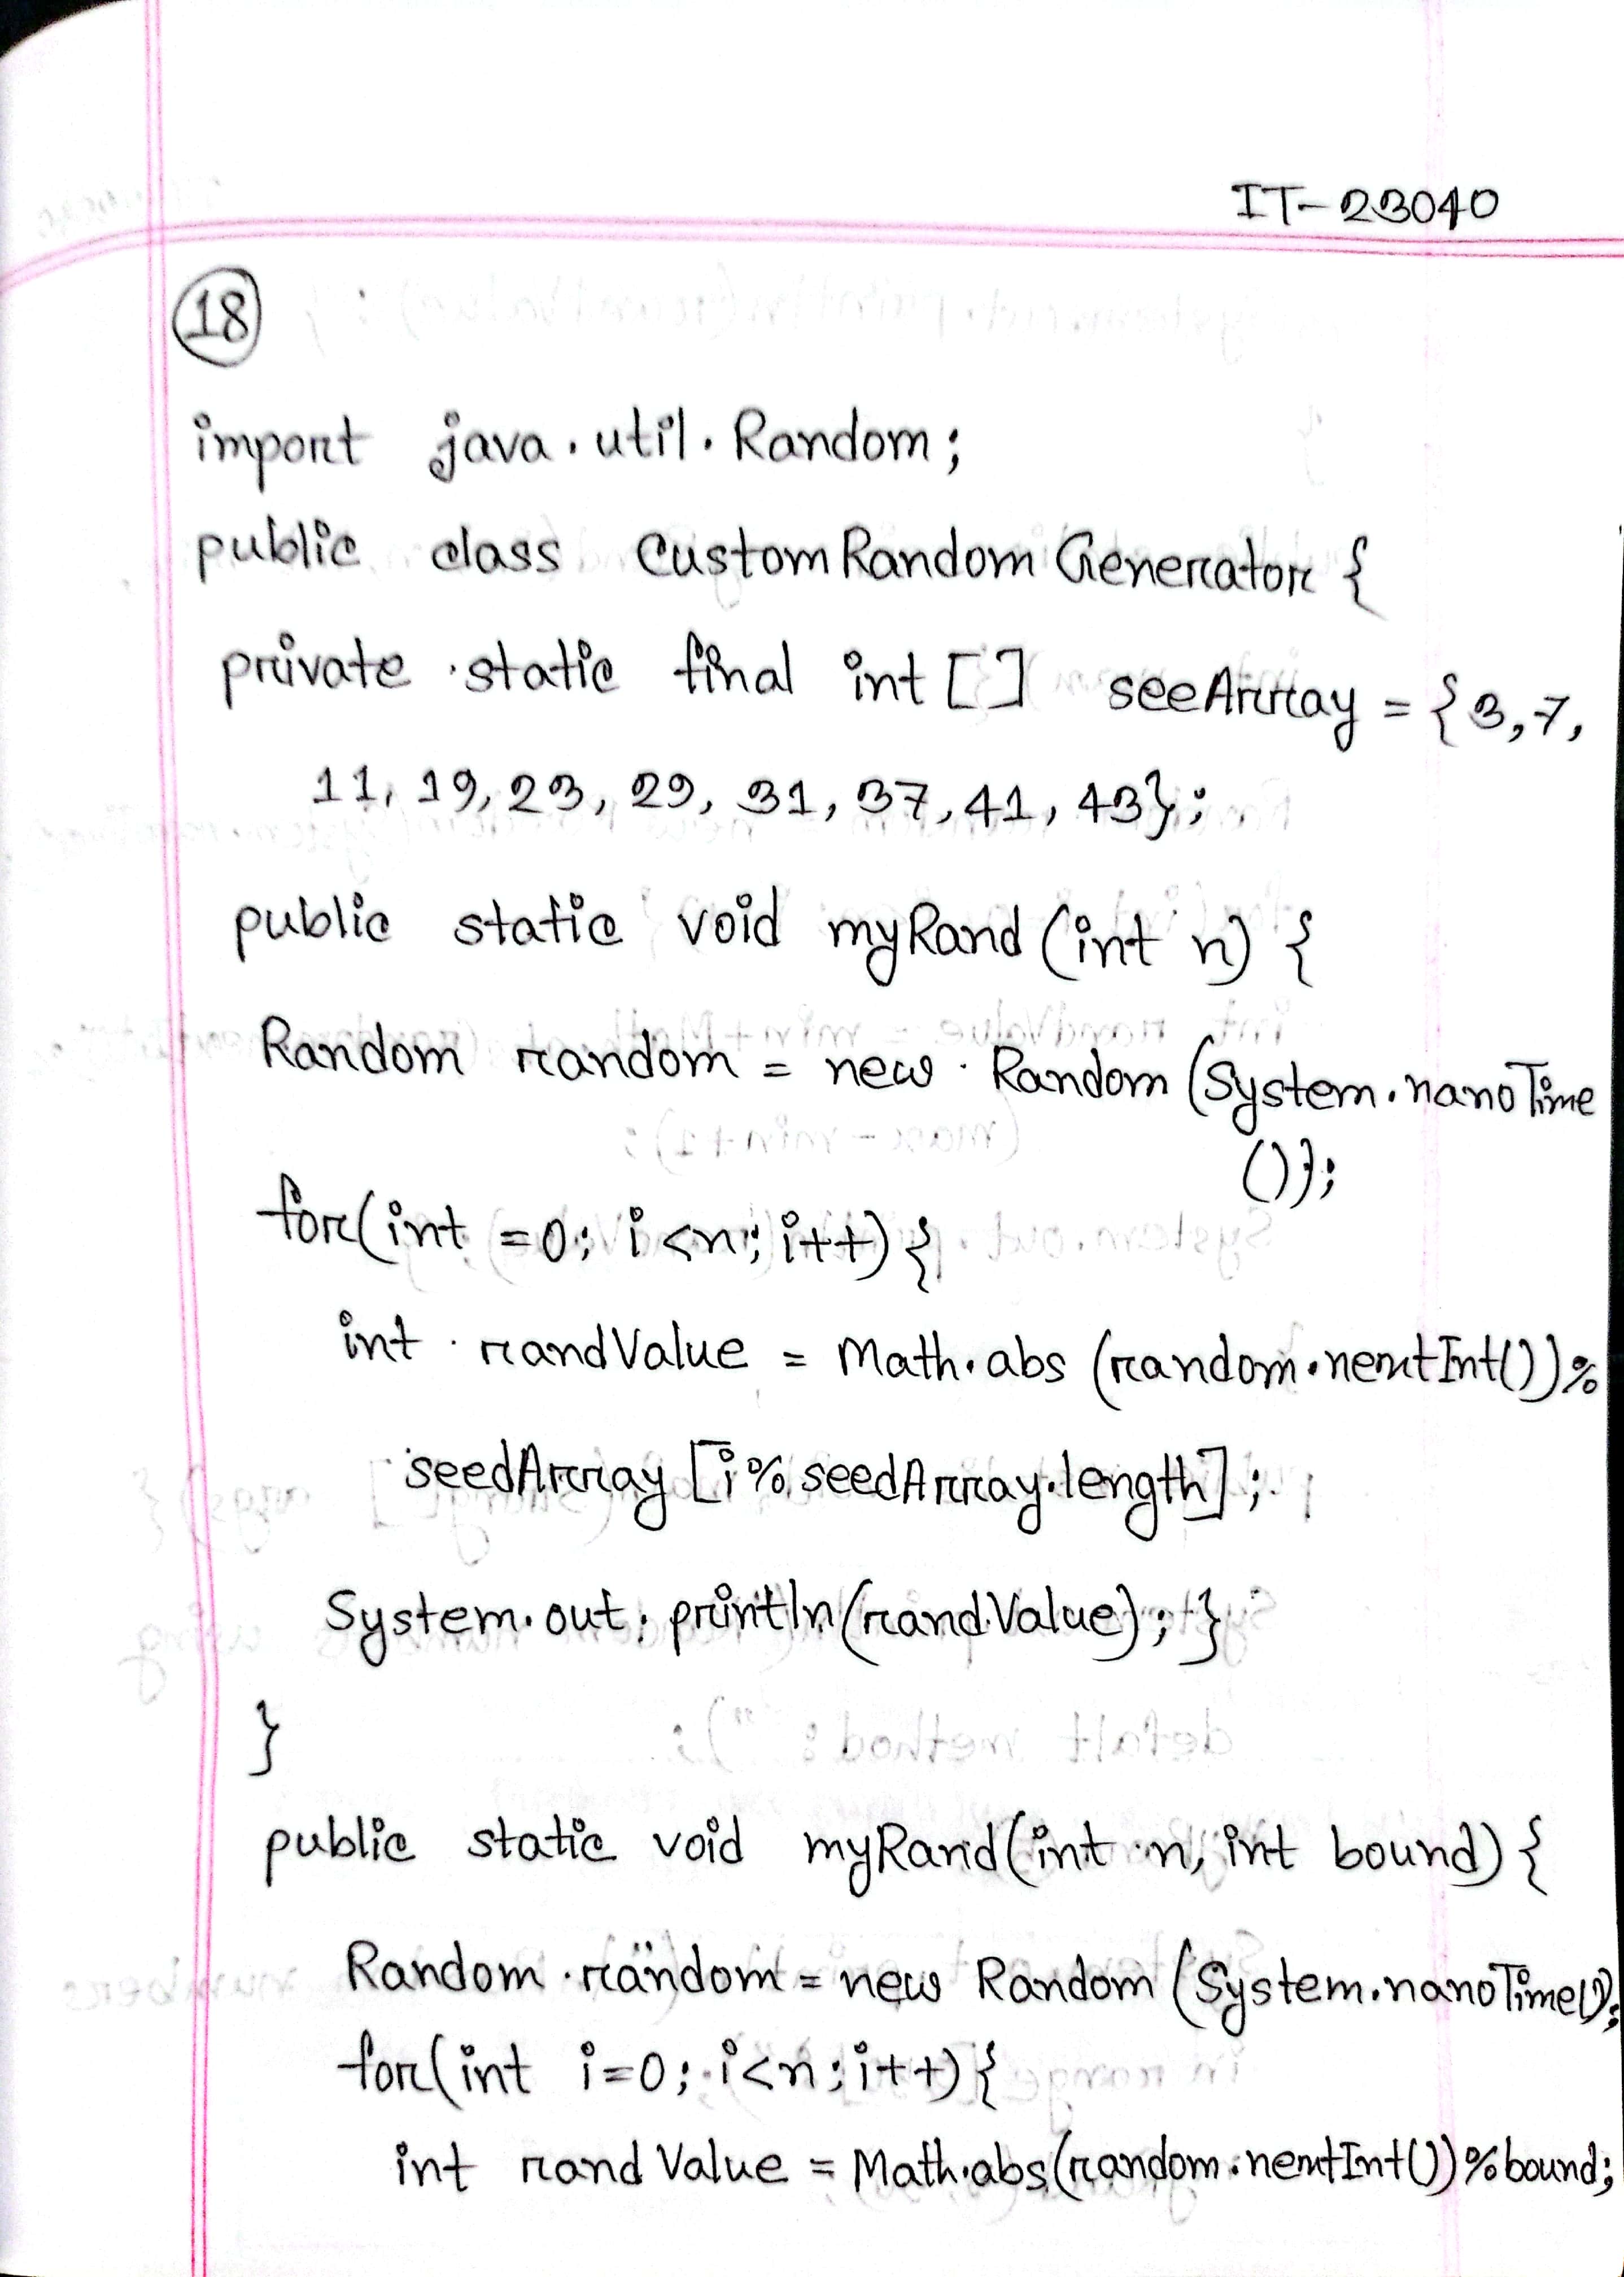 IT-23040
18
import java.util.Random;
public class CustomRandomGenerator {
private static final int [] seeArray = {3,7,
11, 19, 23, 29, 31, 37, 41, 43};
public static void myRand (int n) {
Random random = new Random (System.nanoTime
());
for(int =0; i<n; i++) {
int randValue = Math.abs (random.nextInt())%
seedArray [i%seedArray.length];
System.out.println(randValue); }
}
public static void myRand(int n, int bound) {
Random random = new Random (System.nanoTime());
for(int i=0; i<n; i++) {
int randValue = Math.abs(random.nextInt())%bound;